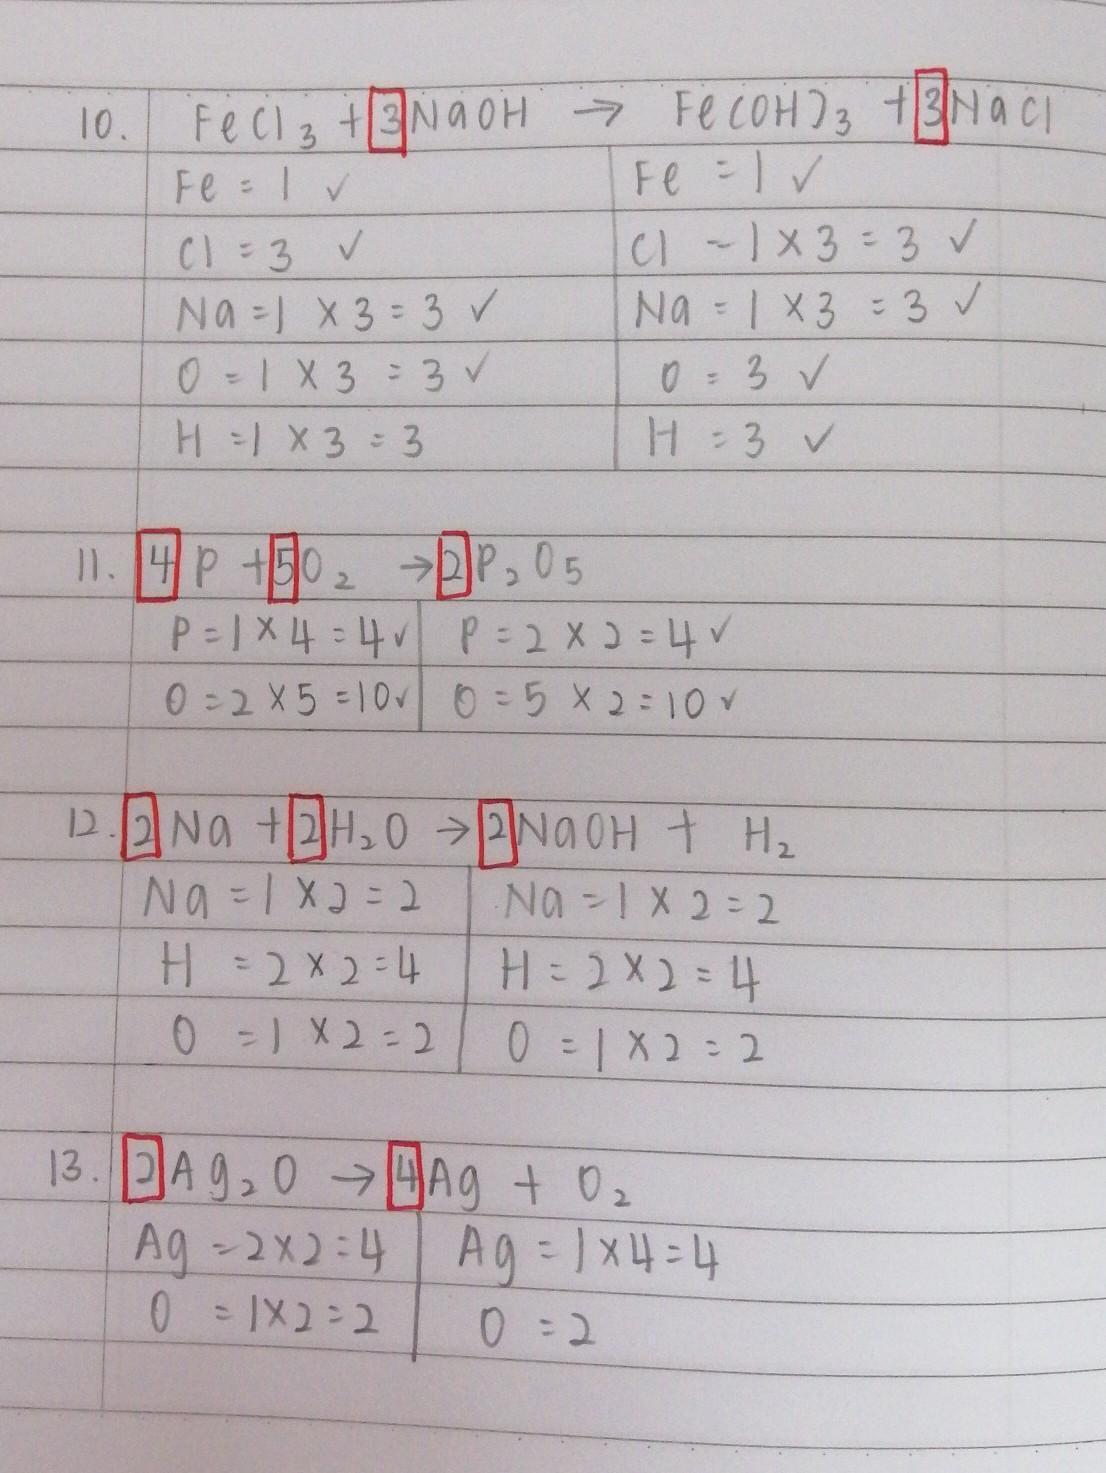 10. FeCl₃ + 3NaOH → Fe(OH)₃ + 3NaCl
Fe = 1 ✓ Fe = 1 ✓
Cl = 3 ✓ Cl - 1 × 3 = 3 ✓
Na = 1 × 3 = 3 ✓ Na = 1 × 3 = 3 ✓
O = 1 × 3 = 3 ✓ O = 3 ✓
H = 1 × 3 = 3 H = 3 ✓
11. 4P + 5O₂ → 2P₂O₅
P = 1 × 4 = 4 ✓ P = 2 × 2 = 4 ✓
O = 2 × 5 = 10 ✓ O = 5 × 2 = 10 ✓
12. 2Na + 2H₂O → 2NaOH + H₂
Na = 1 × 2 = 2 Na = 1 × 2 = 2
H = 2 × 2 = 4 H = 2 × 2 = 4
O = 1 × 2 = 2 O = 1 × 2 = 2
13. 2Ag₂O → 4Ag + O₂
Ag = 2 × 2 = 4 Ag = 1 × 4 = 4
O = 1 × 2 = 2 O = 2